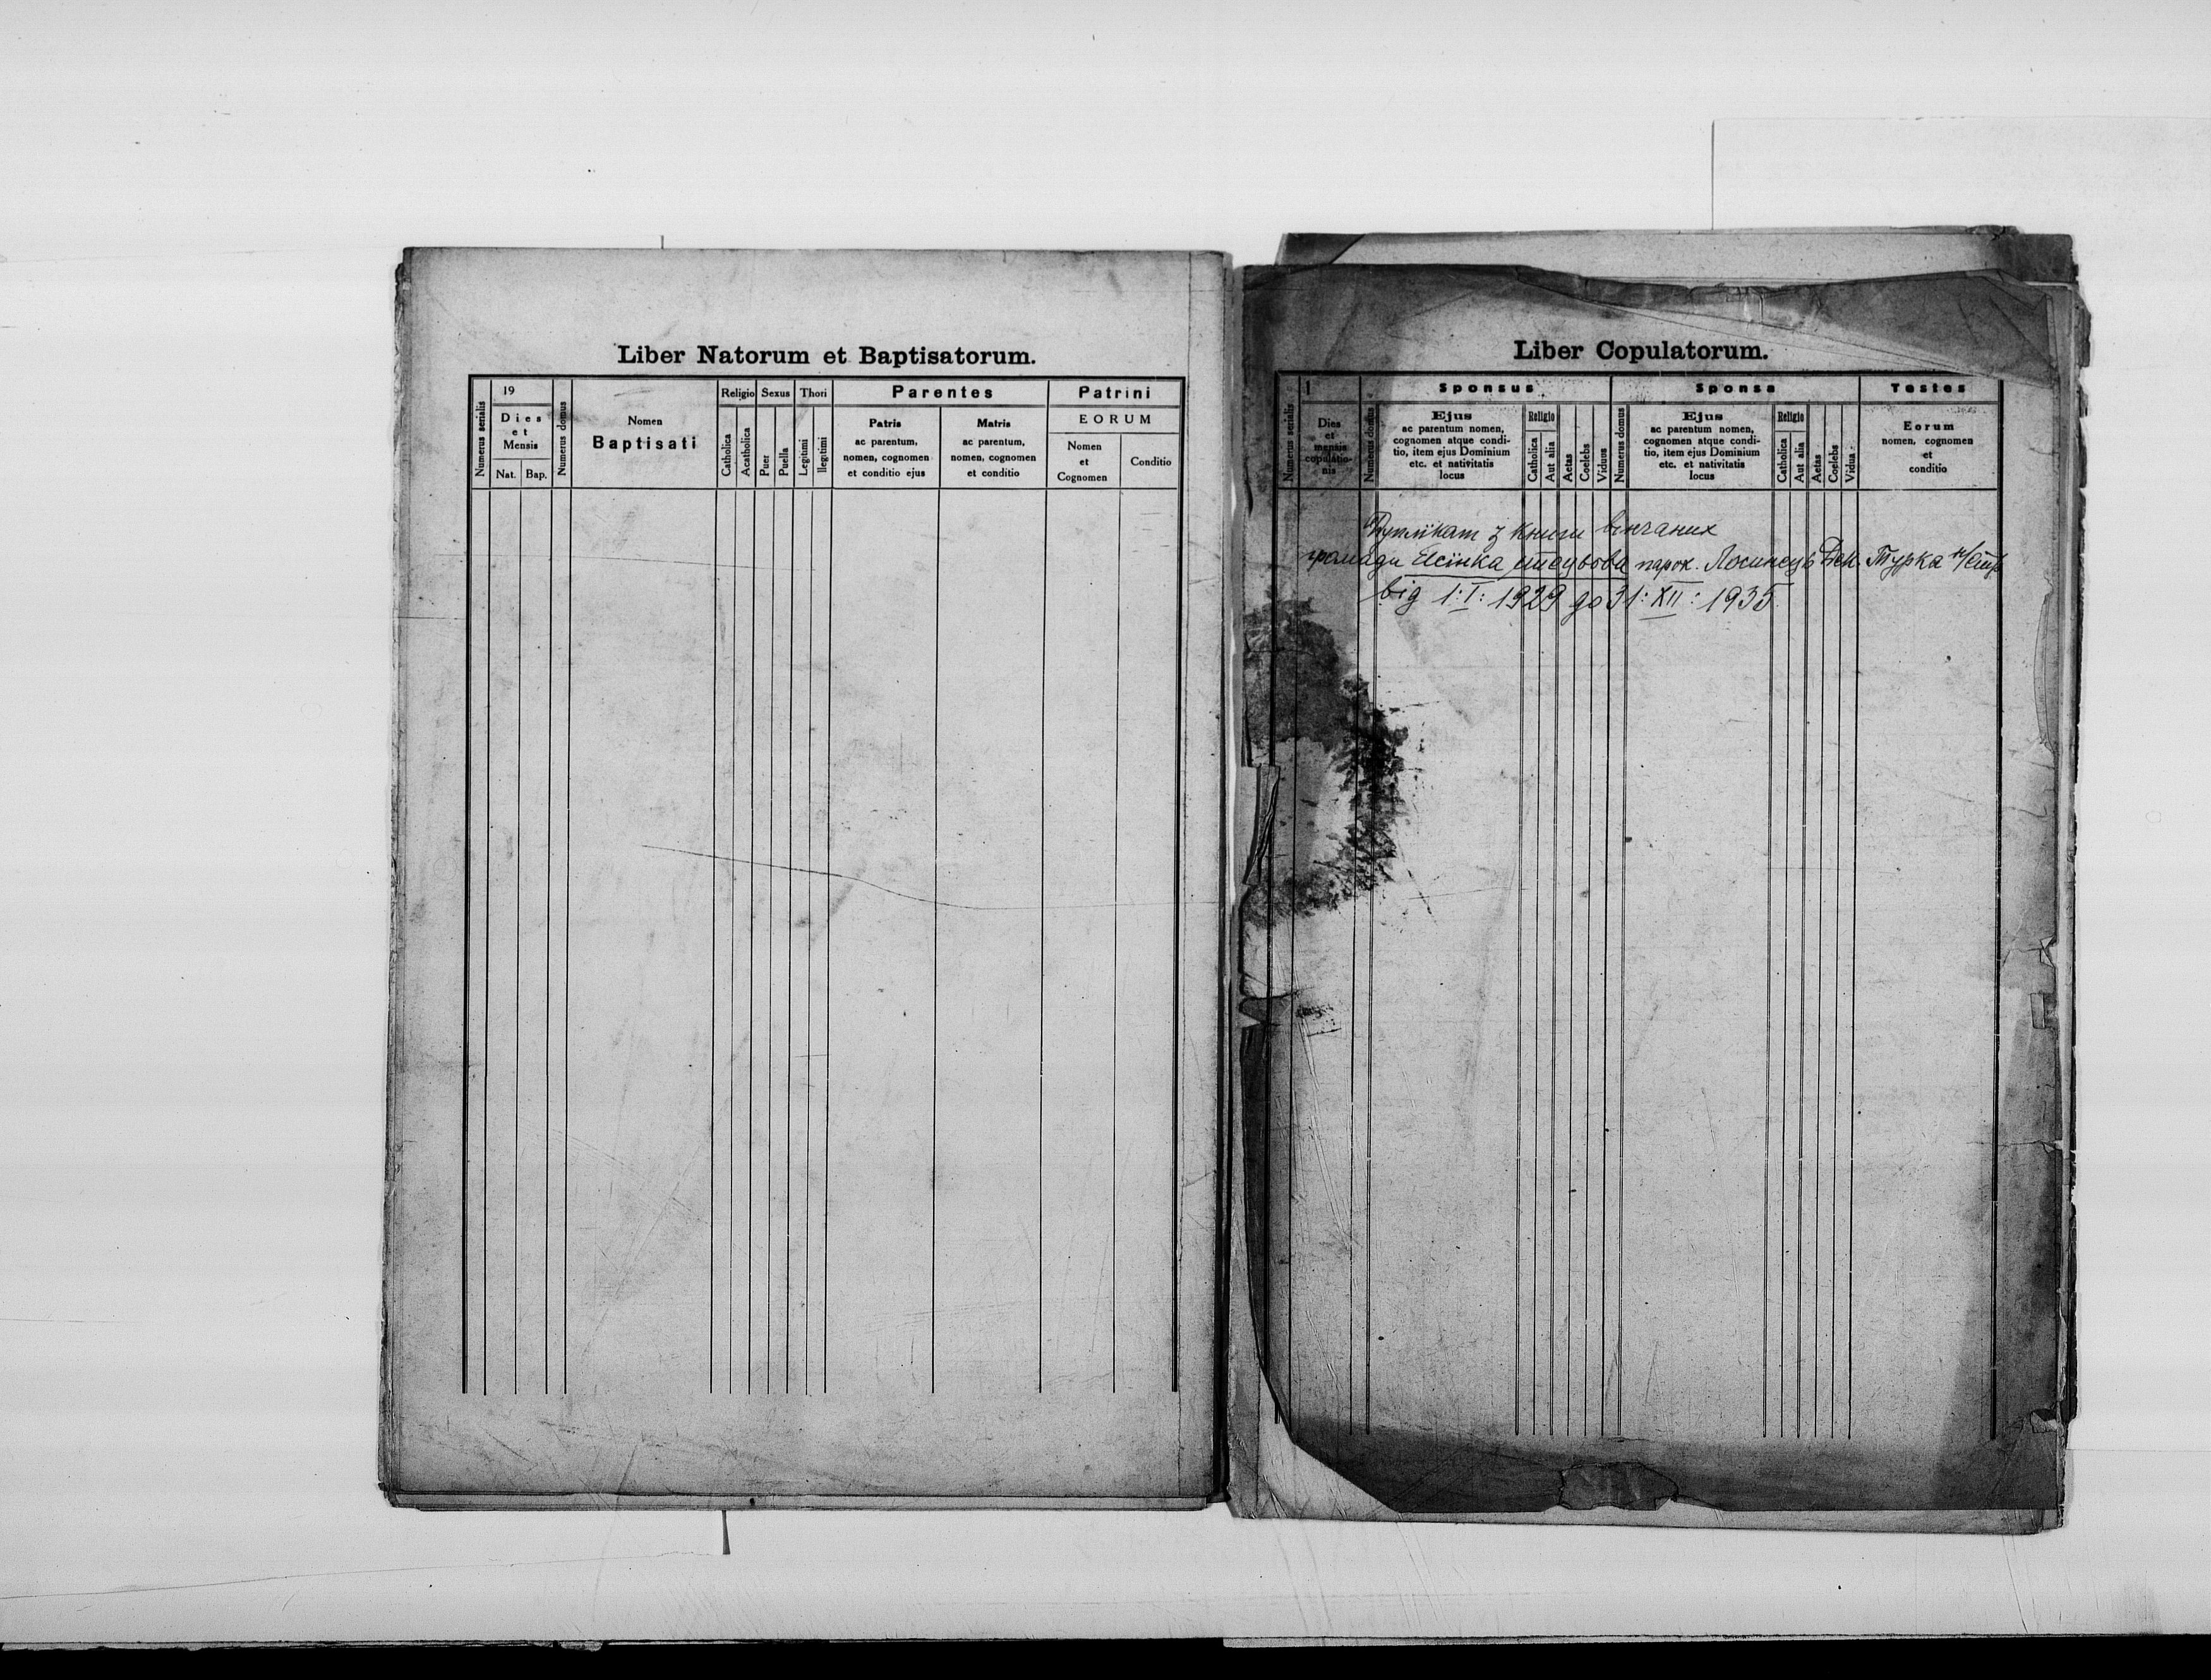 Liber Natorum et Baptisatorum.
Numerus serialis
19
Dies
et
Mensis
Nat. Bap.
Numerus domus
Nomen
Baptisati
Religio
Catholica
Acatholica
Sexus
Puer
Puella
Thori
Legitimi
Illegitimi
Parentes
Patris
ac parentum,
nomen, cognomen
et conditio ejus
Matris
ac parentum,
nomen, cognomen
et conditio
Patrini
EORUM
Nomen
et
Cognomen
Conditio
Liber Copulatorum.
Numerus serialis
1
Dies
et
mensis
copulatio-
nis
Sponsus
Numerus domus
Ejus
ac parentum nomen,
cognomen atque condi-
tio, item ejus Dominium
etc. et nativitatis
locus
Religio
Catholica
Aut alia
Aetas
Coelebs
Viduus
Sponsa
Numerus domus
Ejus
ac parentum nomen,
cognomen atque condi-
tio, item ejus Dominium
etc. et nativitatis
locus
Religio
Catholica
Aut alia
Aetas
Coelebs
Vidua
Testes
Eorum
nomen, cognomen
et
conditio
Дуплїкат з книги вінчаних
громади парох. Лосинець Дек. Турка н/Стр
від 1: I: 1929 до 31: XII: 1935